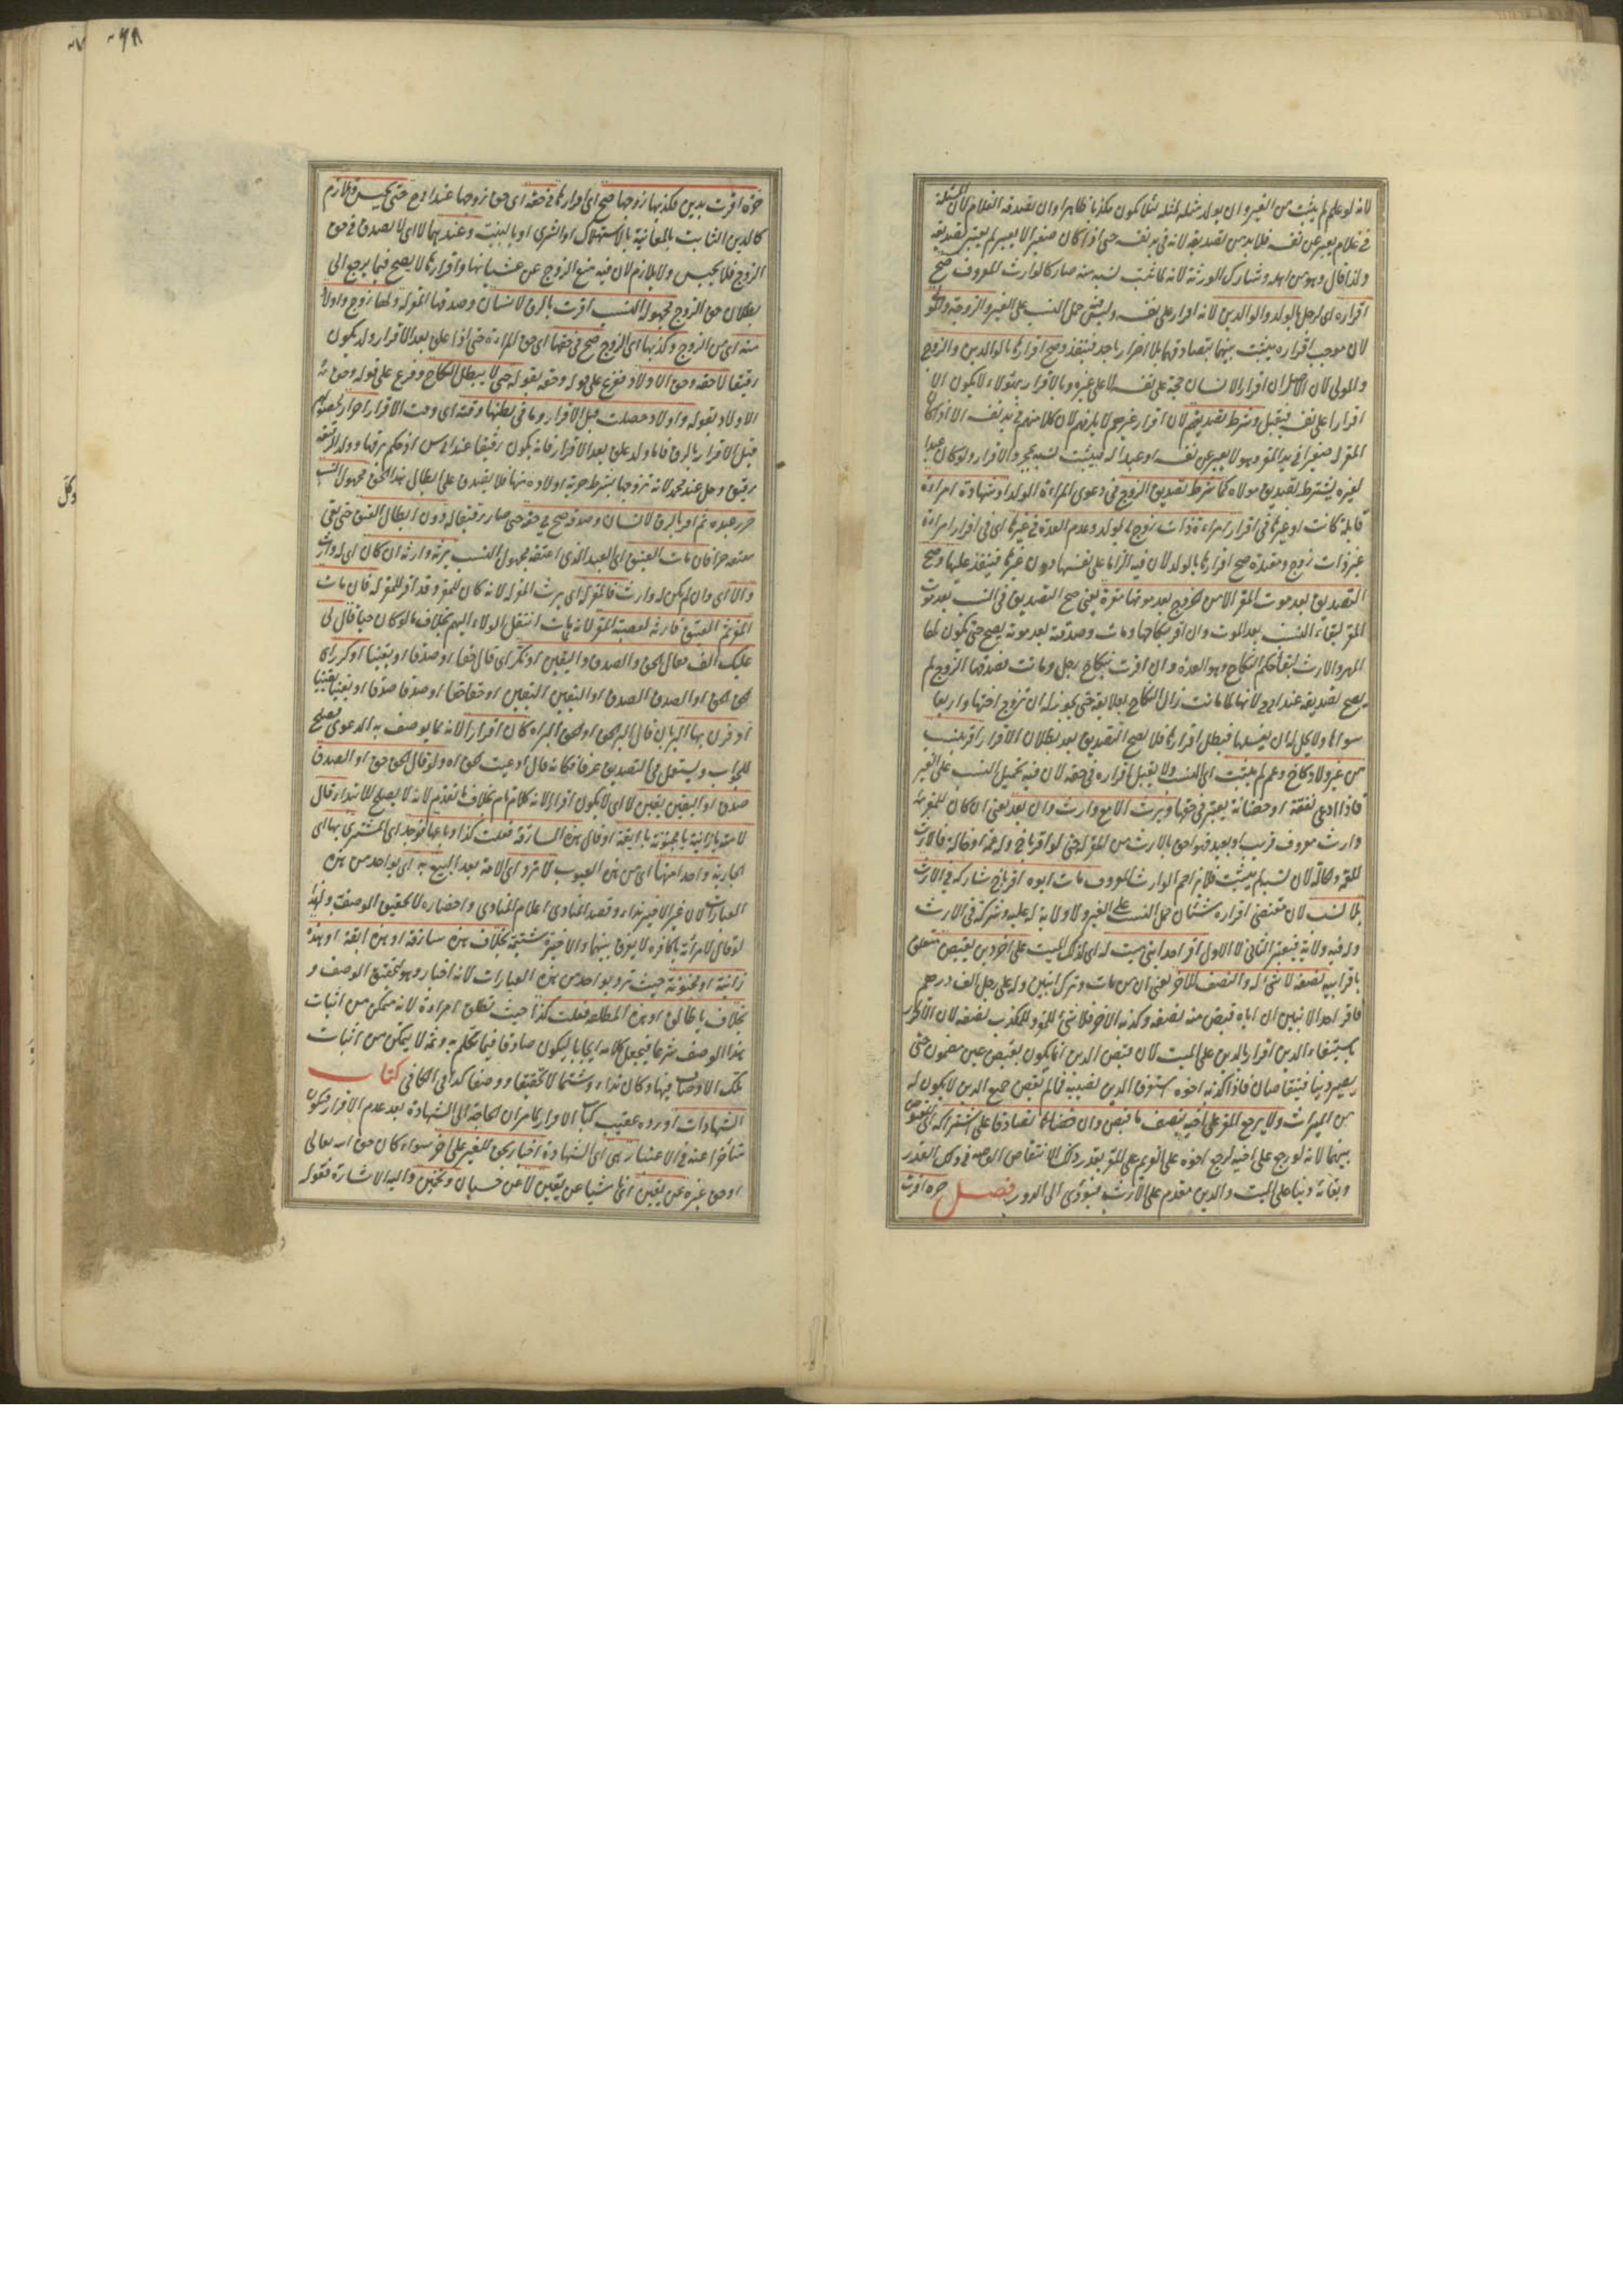 لانه لو علم لم يثبت من الغير وان يولد مثله لمثله لئلا يكون مكذبا ظاهرا وان يصدقه الغلام لان المسئلة
في غلام يعبر عن نفسه فلا بد من تصديقه لانه في يد نفسه حتى اذا كان صغيرا لا يعبر لم يعتبر تصديقه
ولذا قال وهو من اهله وشارك الورثة لانه لما ثبت نسبه منه صار كالوارث المعروف صح
اقراره اى الرجل بالولد والوالدين لانه اقرار على نفسه وليس حمل النسب على الغير والزوجة والمولى
لان موجب اقراره يثبت بينهما بتصادقهما بلا اضرار باحد فينفذ وصح اقرارها بالوالدين والزوج
والمولى لان الاصل ان اقرار الانسان حجة على نفسه لا على غيره وبالاقرار بهؤلاء لا يكون الا
اقرارا على نفسه فيقبل وشرط تصديقهم لان اقرار غيرهم لا يلزمهم لان كلا منهم في يد نفسه الا اذا كان
المقر له صغيرا في يد المقر وهو لا يعبر عن نفسه او عبدا له فيثبت نسبه بمجرد الاقرار ولو كان عبدا
لغيره يشترط تصديق مولاه كما شرط تصديق الزوج في دعوى المراة الولد او شهادة امراة
قابلة كانت او غيرها في اقرار امراة ذات زوج بالولد وعدم العدة في غيرها اى في اقرار امراة
غير ذات زوج ومعتدة صح اقرارها بالولد لان فيه الزاما على نفسها دون غيرها فينفذ عليها وصح
التصديق بعد موت المقر الا من الزوج بعد موتها مقرة يعنى صح التصديق في النسب بعد موت
المقر لبقاء النسب بعد الموت وان اقر بنكاحها ومات وصدقته بعد موته يصح حتى يكون لها
المهر والارث لبقاء حكم النكاح وهو العدة وان اقرت بنكاح رجل وماتت فصدقها الزوج لم
يصح تصديقه عند ابى ح لانها لما ماتت زال النكاح بعلايقه حتى يجوز له ان يتزوج اختها واربعا
سواها ولا يحل له ان يغسلها فبطل اقرارها فلا يصح التصديق بعد بطلان الاقرار اقر بنسب
من غير ولاد كاخ وعم لم يثبت اى النسب ولا يقبل اقراره في حقه لان فيه تحميل النسب على الغير
فاذا ادعى نفقة او حضانة يعتبر في حقها ويرث الا مع وارث وان بعد يعنى ان كان للمقر به
وارث معروف قريب او بعيد فهو احق بالارث من المقر له حتى لو اقر باخ وله عمة او خالة فالارث
للعمة والخالة لان نسبه لم يثبت فلا يزاحم الوارث المعروف مات ابوه اقر باخ شاركه في الارث
بلا نسب لان مقتضى اقراره شيئان حمل النسب على الغير ولا ولاية له عليه وشركته في الارث
وله فيه ولاية فيعتبر الثانى لا الاول اقر احد ابنى ميت له اى لذلك الميت على آخر دين بقبض متعلق
باقر ابيه نصفه لا شئ له والنصف للاخر يعنى ان من مات وترك ابنين وله على رجل الف درهم
فاقر احد الابنين ان اباه قبض منه نصفه وكذبه الاخر فلا شئ للمقر وللمكذب نصفه لان الاقرار
باستيفاء الدين اقرار بالدين على الميت لان قبض الدين انما يكون بقبض عين مضمون حتى
يصير دينا فيتقاصان فاذا كذبه اخوه استغرق الدين نصيبه فما لم يقبض جميع الدين لا يكون له
من الميراث ولا يرجع المقر على اخيه بنصف ما قبض وان تصادقا على اشتراكه اى المقبوض
بينهما لانه لو رجع على اخيه لرجع اخوه على الغريم على المقر بقدر ذلك لانتقاص المقاصة في ذلك القدر
وبقائه دينا على الميت والدين مقدم على الارث فيؤدى الى الدور فصل حرة اقرت
حرة اقرت بدين فكذبها زوجها صح اى اقرارها في حقه اى حق زوجها عند ابى ح حتى تحبس وتلازم
كالدين الثابت بالمعاينة بالاستهلاك او الشرى او بالبينة وعندهما لا اى لا يصدق في حق
الزوج فلا يحبس ولا يلازم لان فيه منع الزوج عن غشيانها واقرارها لا يصح فيما يرجع الى
بطلان حق الزوج مجهولة النسب اقرت بالرق لانسان وصدقها المقر له ولها زوج واولاد
منه اى من الزوج وكذبها اى الزوج صح في حقها اى حق المراة حتى اذا علق بعد الاقرار ولد يكون
رقيقا لا حقه وحق الاولاد فرع على قوله وحقه بقوله حتى لا يبطل النكاح وفرع على قوله وحق
الاولاد بقوله واولاد حصلت قبل الاقرار وما في بطنها وقته اى وقت الاقرار احرار لحصولهم
قبل الاقرار بالرق فاما ولد علق بعد الاقرار فانه يكون رقيقا عند ابى س اذ حكم برقها وولد الرقيقة
رقيق وحر عند محمد لانه تزوجها بشرط حرية اولاده منها فلا يصدق على ابطال هذا الحق مجهول النسب
حرر عبده ثم اقر بالرق لانسان وصدقه صح في حقه حتى صار رقيقا له دون ابطال العتق حتى بقى
معتقه حرا فان مات العتيق اى العبد الذى اعتقه مجهول النسب يرثه وارثه ان كان اى له وارث
والا اى وان لم يكن له وارث فالمقر له اى يرث المقر له لانه كان للمقر وقد اقر للمقر له فان مات
المقر ثم العتيق فارثه لعصبة المقر لانه لما مات انتقل الولاء اليهم بخلاف ما لو كان حيا قال لى
عليك الف فقال الحق والصدق واليقين او نكر اى قال حقا او صدقا او يقينا او كرر اى
الحق الحق او الصدق الصدق او اليقين اليقين او حقا حقا او صدقا صدقا او يقينا يقينا
او قرن بها البر بان قال البر الحق او الحق البر اه كان اقرارا لانه مما يوصف به الدعوى فصلح
للجواب ويستعمل في التصديق عرفا فكانه قال ادعيت الحق اه ولو قال الحق حق او الصدق
صدق او اليقين يقين لا اى لا يكون اقرارا لانه كلام تام بخلاف ما تقدم لانه لا يصلح للابتداء قال
لامته يا زانية يا مجنونة يا ابقة او قال هذه السارقة فعلت كذا وباعها فوجد اى المشترى بها اى
الجارية واحدا منها اى من هذه العيوب لا ترد اى الامة بعد البيع به اى بواحد من هذه
العبارات لان غير الاخير نداء وقصد المنادى اعلام المنادى واحضاره لا تحقيق الوصف ولهذا
لو قال لامراته يا كافرة لا يفرق بينهما والاخيرة شتيمة بخلاف هذه سارقة او هذه ابقة او هذه
زانية او مجنونة حيث ترد بواحد من هذه العبارات لانه اخبار وهو لتحقيق الوصف و
بخلاف يا طالق او هذه المطلقة فعلت كذا حيث تطلق امراته لانه متمكن من اثبات
هذا الوصف شرعا فيجعل كلامه ايجابا ليكون صادقا فيما تكلم به وثمه لا يتمكن من اثبات
تلك الاوصاف فيها وكان نداء وشتما لا تحقيقا ووصفا كذا في الكافى كتاب
الشهادات اورده عقيب كتاب الاقرار لما مر ان الحاجة الى الشهادة بعد عدم الاقرار فتكون
متأخرا عنه في الاعتبار هى اى الشهادة اخبار بحق للغير على اخر سواء كان حق الله تعالى
او حق غيره عن يقين اى ناشيا عن يقين لا عن حسبان وتخمين واليه الاشارة بقوله
وكل